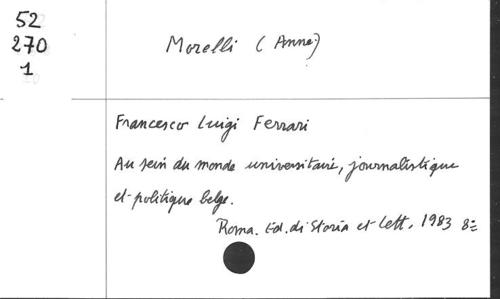 52
270
1
Morelli (Anne)
Francesco Luigi Ferrari
Au sein du monde universitaire, journalistique
et politique belge.
Roma. Ed. di Storia et Lett, 1983 8=